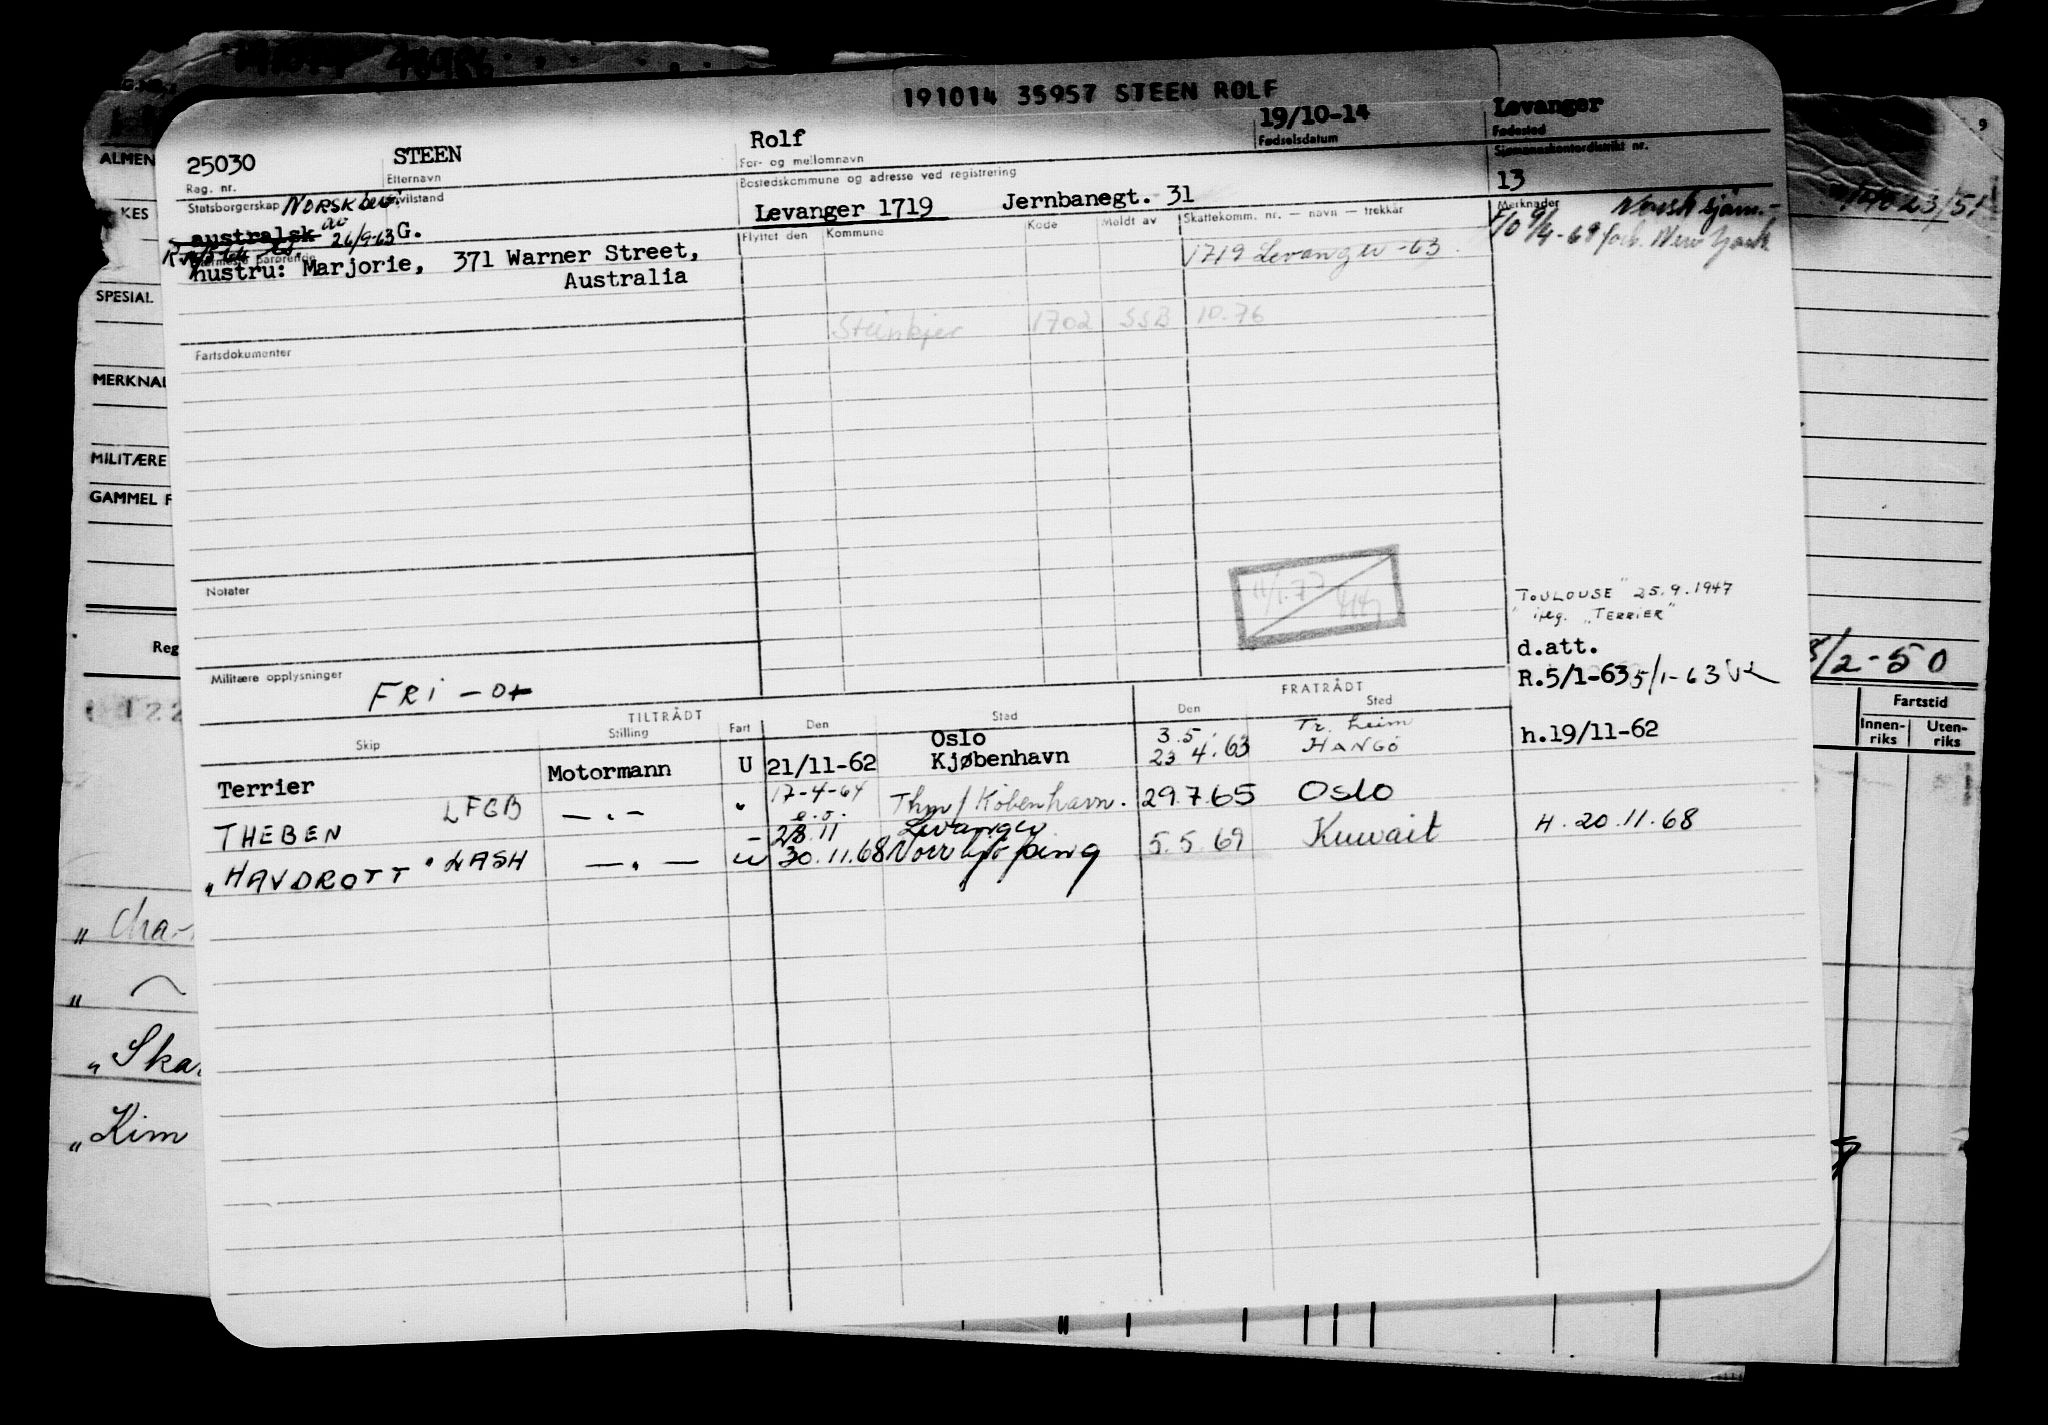 191014 35957 STEEN ROLF
25030 STEEN Rolf 19/10-14 Levanger
Reg. nr. Etternavn For- og mellomnavn Fødselsdatum Fødested
Statsborgerskap NORSK bev. Sivilstand Bostedskommune og adresse ved registrering Sjømannskontordistrikt nr.
av 13
australsk 26/9-63 G. Levanger 1719 Jernbanegt. 31
Flyttet den Kommune Kode Meldt av Skattekomm. nr. — navn — trekkår Merknader
Norsk sjøm.-
Nærmeste pårørende
hustru: Marjorie, 371 Warner Street, 1719 Levanger -63 9/4-69 forb. New York
Australia
Steinkjer 1702 SSB 10.76
Fartsdokumenter
Notater
11/1.77
TOULOUSE" 25.9.1947
"TERRIER"
d.att.
Militære opplysninger FRI - R.5/1-63 5/1-63
TILTRÅDT FRATRÅDT
Skip Stilling Fart Den Sted Den Sted
Oslo 3.5. Tr.heim h.19/11-62
Terrier Motormann U 21/11-62 Kjøbenhavn 23.4.63 HANGÖ
17-4-64
THEBEN LFGB — . — " Thm/København. 29.7.65 Oslo
28.11 Levanger
"HAVDROTT" LASH — . — u 30.11.68 Norrkjøping 5.5.69 Kuwait H. 20.11.68
ALMEN
KES
SPESIAL
MERKNAD
MILITÆRE
GAMMEL F
Reg
/2-50
Fartstid
Innen-riks Uten-riks
9
" Cha
" Ska
" Kim